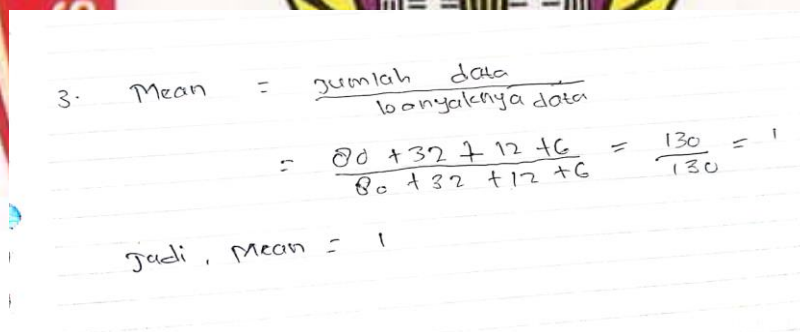 3. Mean = Jumlah data / banyaknya data
= 80 + 32 + 12 + 6 / 80 + 32 + 12 + 6 = 130 / 130 = 1
Jadi, Mean = 1